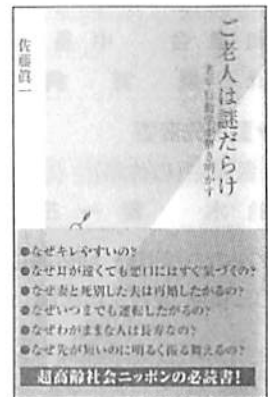 ご老人は謎だらけ
老年行動学が解き明かす
佐藤眞一
●なぜキレやすいの?
●なぜ耳が遠くても悪口にはすぐ気づくの?
●なぜ妻と死別した夫は再婚したがるの?
●なぜいつまでも運転したがるの?
●なぜわがままな人は長寿なの?
●なぜ先が短いのに明るく振る舞えるの?
超高齢社会ニッポンの必読書!